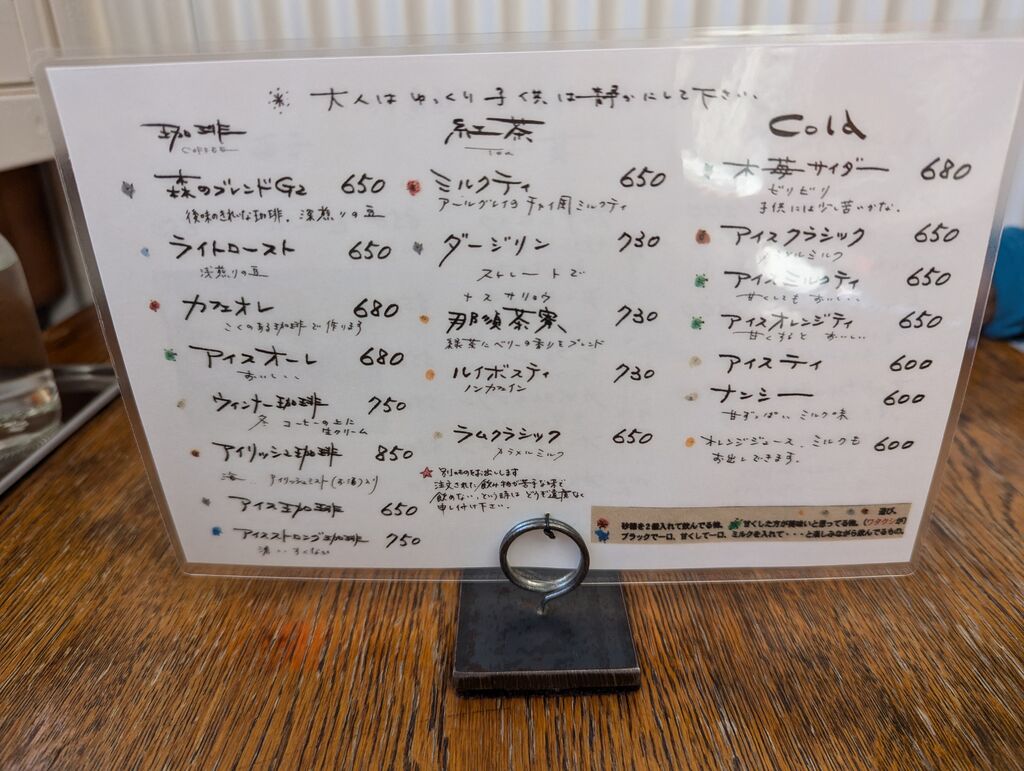 大人はゆっくり子供は静かにして下さい。
珈琲
COFFEE
森のブレンドG2 650
後味のきれいな珈琲。深煎りの豆
ライトロースト 650
浅煎りの豆
カフェオレ 680
こくのある珈琲で作ります
アイスオーレ 680
おいしい、
ウィンナー珈琲 750
冬 コーヒーの上に
生クリーム
アイリッシュ珈琲 850
アイリッシュミスト(お酒)入り
アイス珈琲 650
アイスストロング珈琲 750
紅茶
Tea
ミルクティ 650
アールグレイorチャイ風ミルクティ
ダージリン 730
ストレートで
ナスサリョウ
那須茶寮 730
緑茶にベリーの香りをブレンド
ルイボスティ 730
ノンカフェイン
ラムクラシック 650
カラメルミルク
別のものをお出しします
注文された飲み物が苦手な味で
飲めない、という時は どうぞ遠慮なく
申し付け下さい。
Cold
木苺サイダー 680
ビリビリ
子供には少し苦いかな。
アイスクラシック 650
ミルク
アイスミルクティ 650
甘くしても おいしい
アイスオレンジティ 650
甘くすると おいしい
アイスティ 600
ナンシー 600
甘ずっぱい ミルク味
オレンジジュース、ミルクも 600
お出しできます。
遊び、
砂糖を2個入れて飲んでる物、甘くした方が美味いと思ってる物、(ワタクシが)
ブラックで一口、甘くして一口、ミルクを入れて・・・と楽しみながら飲んでるもの。